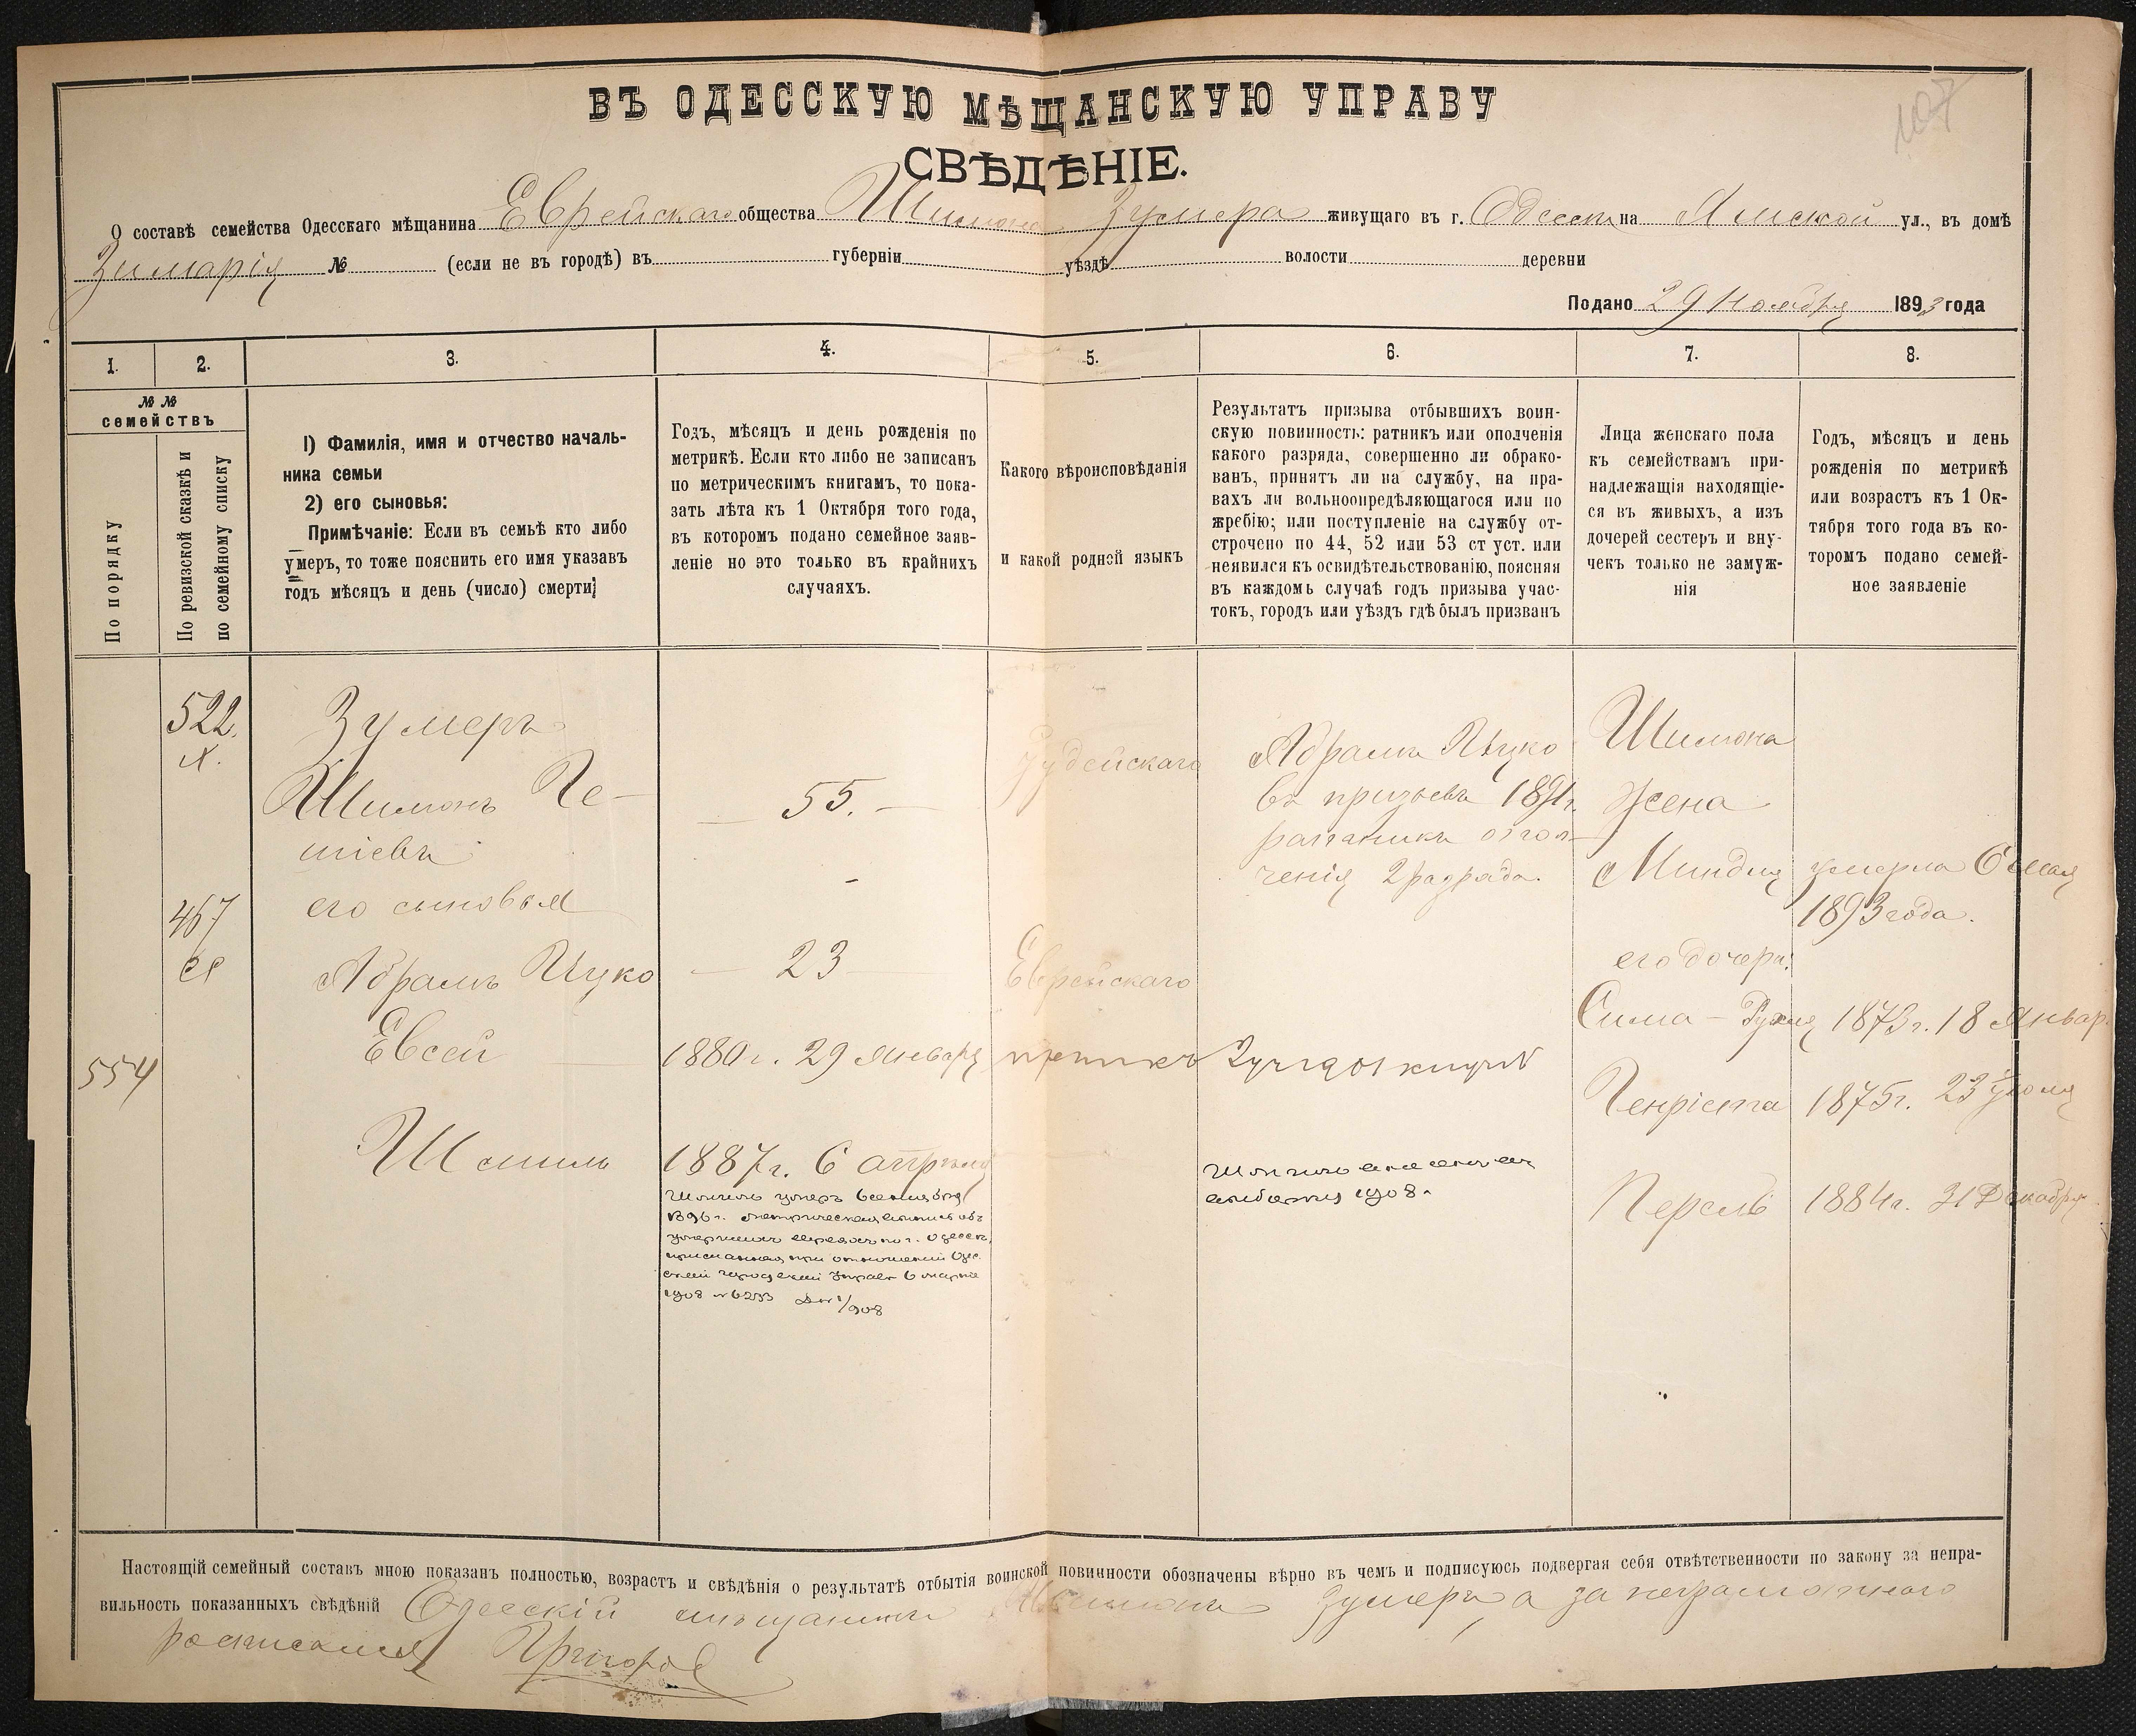 107
ВЪ ОДЕССКУЮ МѢЩАНСКУЮ УПРАВУ
СВѢДѢНІЕ.
О составѣ семейства Одесскаго мѣщанина Еврейскаго общества Шимона Зумера живущаго въ г. Одессѣ на Ямской ул., въ домѣ
№ (если не въ городѣ) въ губерніи уѣздѣ волости деревни
Подано 29 Ноября 1893 года
1. 2. 3. 4. 5. 6. 7. 8.
№ №
семействъ
По порядку
По ревизской сказкѣ и
по семейному списку
1) Фамилія, имя и отчество началь-
ника семьи
2) его сыновья:
Примѣчаніе: Если въ семьѣ кто либо
умеръ, то тоже пояснить его имя указавъ
годъ мѣсяцъ и день (число) смерти;
Годъ, мѣсяцъ и день рожденія по
метрикѣ. Если кто либо не записанъ
по метрическимъ книгамъ, то пока-
зать лѣта къ 1 Октября того года,
въ которомъ подано семейное заяв-
леніе но это только въ крайнихъ
случаяхъ.
Какого вѣроисповѣданія
и какой родной языкъ
Результатъ призыва отбывшихъ воин-
скую повинность: ратникъ или ополченія
какого разряда, совершенно ли обрако-
ванъ, принятъ ли на службу, на пра-
вахъ ли вольноопредѣляющагося или по
жребію; или поступленіе на службу от-
строчено по 44, 52 или 53 ст уст. или
неявился къ освидѣтельствованію, поясняя
въ каждомъ случаѣ годъ призыва учас-
токъ, городъ или уѣздъ гдѣ былъ призванъ
Лица женскаго пола
къ семействамъ при-
надлежащія находящіе-
ся въ живыхъ, а изъ
дочерей сестеръ и вну-
чекъ только не замуж-
нія
Годъ, мѣсяцъ и день
рожденія по метрикѣ
или возрастъ къ 1 Ок-
тября того года въ ко-
торомъ подано семей-
ное заявленіе
522.
467
554
Зумеръ
Шимонъ
его сыновья
Абрамъ Ицко
Евсей
Шмиль
55.
23
1880 г. 29 Января
1887 г. 6 апрѣля
Шмиль умеръ
1896 г.
1908
Іудейскаго
Еврейскаго
Абрамъ Ицко
въ призывъ 1891 г.
ратникъ опол-
ченія 2 разряда.
1908.
Шимона
Жена
Миндля умерла 6 мая
1893 года.
его дочери:
Сима - Рухля 1873 г. 18 Январ.
Генріета 1875 г. 23 Іюля
Перель 1884 г. 31 Декабря
Настоящій семейный составъ мною показанъ полностью, возрастъ и свѣдѣнія о результатѣ отбытія воинской повинности обозначены вѣрно въ чемъ и подписуюсь подвергая себя отвѣтственности по закону за непра-
вильность показанныхъ свѣдѣній Одесскій мѣщанинъ Шимонъ Зумеръ, а за неграмотнаго
росписался